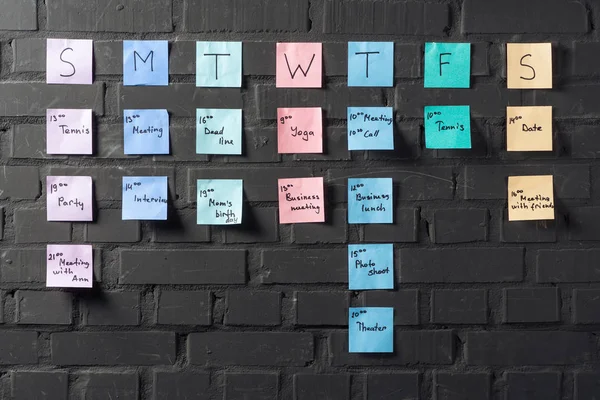 S
M
T
W
T
F
S
13⁰⁰
Tennis
13⁰⁰
Meeting
16⁰⁰
Dead
line
9⁰⁰
Yoga
10⁰⁰ Meeting
Call
10⁰⁰
Tennis
Date
19⁰⁰
Party
14⁰⁰
Interview
19⁰⁰
Mom's
birth
day
13⁰⁰
Business
meeting
12⁰⁰
Business
lunch
16⁰⁰ Meeting
with friends
21⁰⁰
Meeting
with
Ann
15⁰⁰
Photo
shoot
Theater